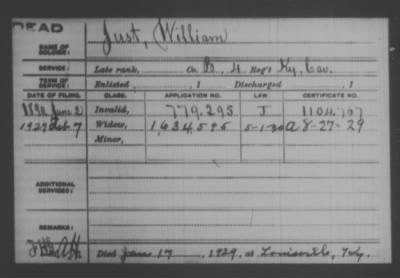 DEAD
NAME OF SOLDIER: Just, William
SERVICE: Late rank, Co. B, 4 Reg't Ky. Cav.
TERM OF SERVICE: Enlisted , 1 Discharged , 1
DATE OF FILING. CLASS. APPLICATION NO. LAW. CERTIFICATE NO.
1892 June 2 Invalid, 779.295 J 1104.707
1929 Feb 7 Widow, 1,634,595 5-1-20 A 8-27-29
Minor,
ADDITIONAL SERVICES:
REMARKS:
Died Jan. 17, 1929, at Louisville, Ky.